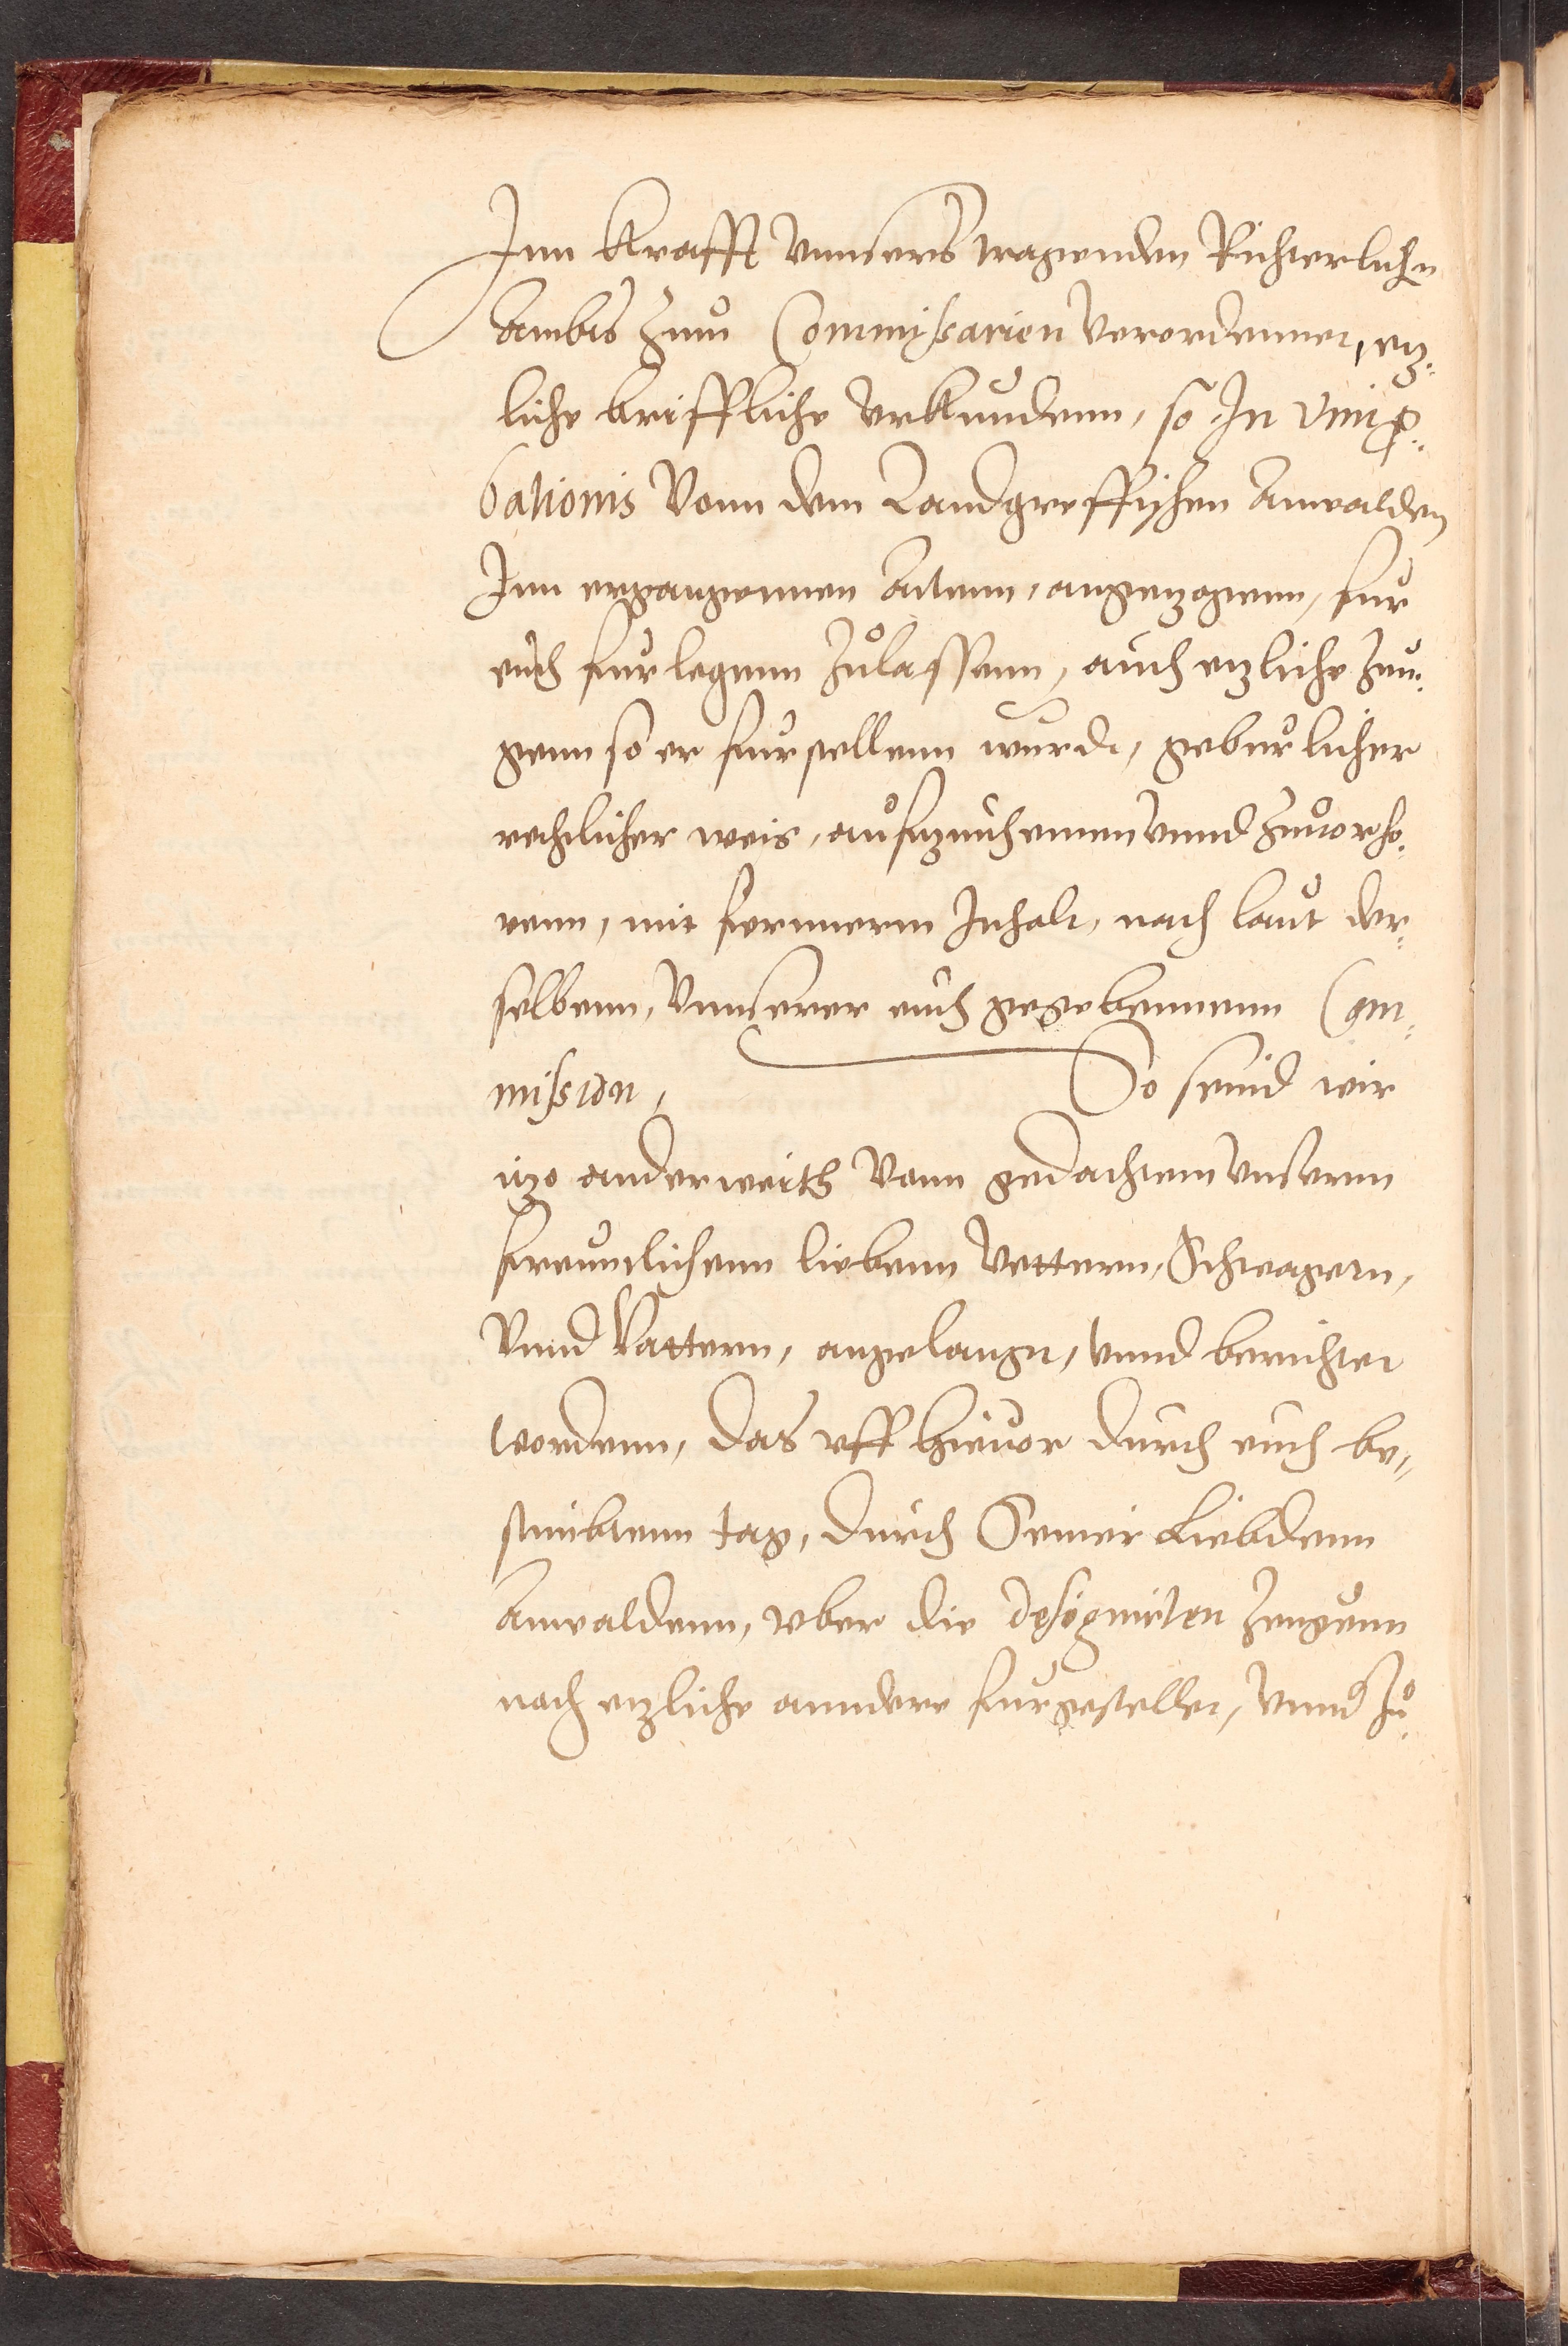 Inn krafft vnnsers tragenden Richterlichn
Ambts zum Commissarien verordennet, etz-
liche briffliche vrkundenn, so In vim p-
bationis vonn dem Landgreffischen Anwalden
Inn ergangennen Actenn, angetzogenn, fur
euch furlegenn zulassenn, auch etzliche zeu-
genn so er furstellenn wurde, geburlicher
rechtlicher weis, auftzunehemen vnnd zuuorho-
renn, mit fernnerm Inhalt, nach laut der-
selbenn, vnnserer euch gegebennenn Com-
mission, So seind wir
itzo anderweith vonn gedachtem vnserm
freuntlichenn liebenn Vettern, Schwagern,
vnnd Vattern, angelangt, vnnd berichtet
wordenn, das vff hieuor durch euch be-
stimbtenn tag, durch Seiner Liebdenn
Anwaldenn, vber die designirten zeugenn
noch etzliche anndere furgestellet, vnnd zu-